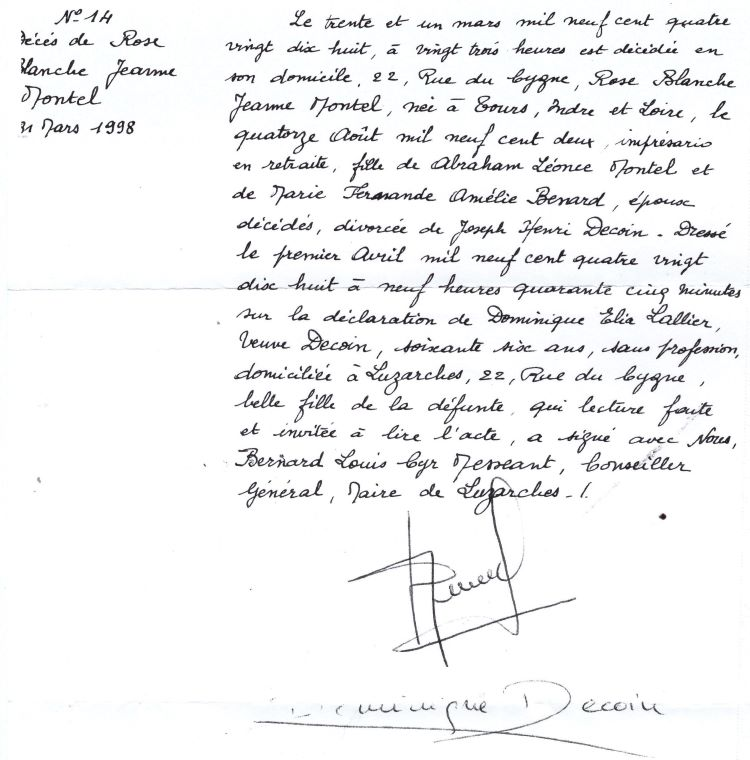 Nº 14
Décès de Rose
Blanche Jeanne
Montel
31 Mars 1998
Le trente et un mars mil neuf cent quatre
vingt dix huit, à vingt trois heures est décédée en
son domicile, 22, Rue du Cygne, Rose Blanche
Jeanne Montel, née à Tours, Indre et Loire, le
quatorze Août mil neuf cent deux, imprésario
en retraite, fille de Abraham Léonce Montel et
de Marie Fernande Amélie Benard, époux
décédés, divorcée de Joseph Henri Decoin - Dressé
le premier Avril mil neuf cent quatre vingt
dix huit à neuf heures quarante cinq minutes
sur la déclaration de Dominique Elia Lallier,
Veuve Decoin, soixante six ans, sans profession,
domiciliée à Luzarches, 22, Rue du Cygne,
belle fille de la défunte, qui lecture faite
et invitée à lire l'acte, a signé avec Nous,
Bernard Louis Cyr Messeant, Conseiller
Général, Maire de Luzarches -/.
Dominique Decoin